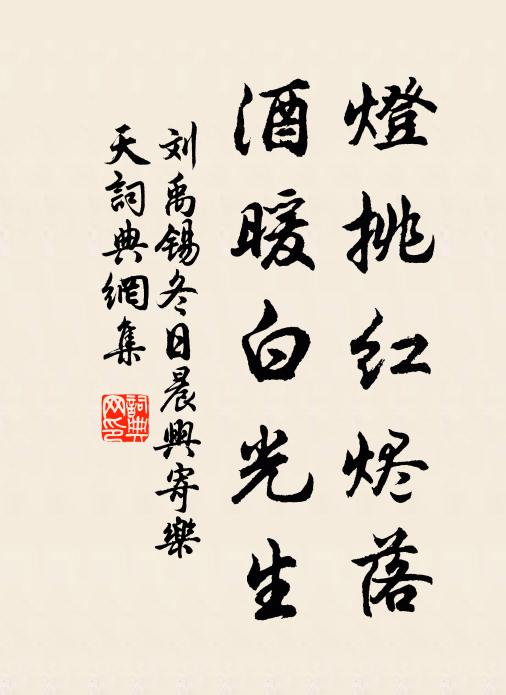 燈挑红烬落
酒暖白光生
刘禹锡冬日晨興寄樂
天詞典網集
詞典网印